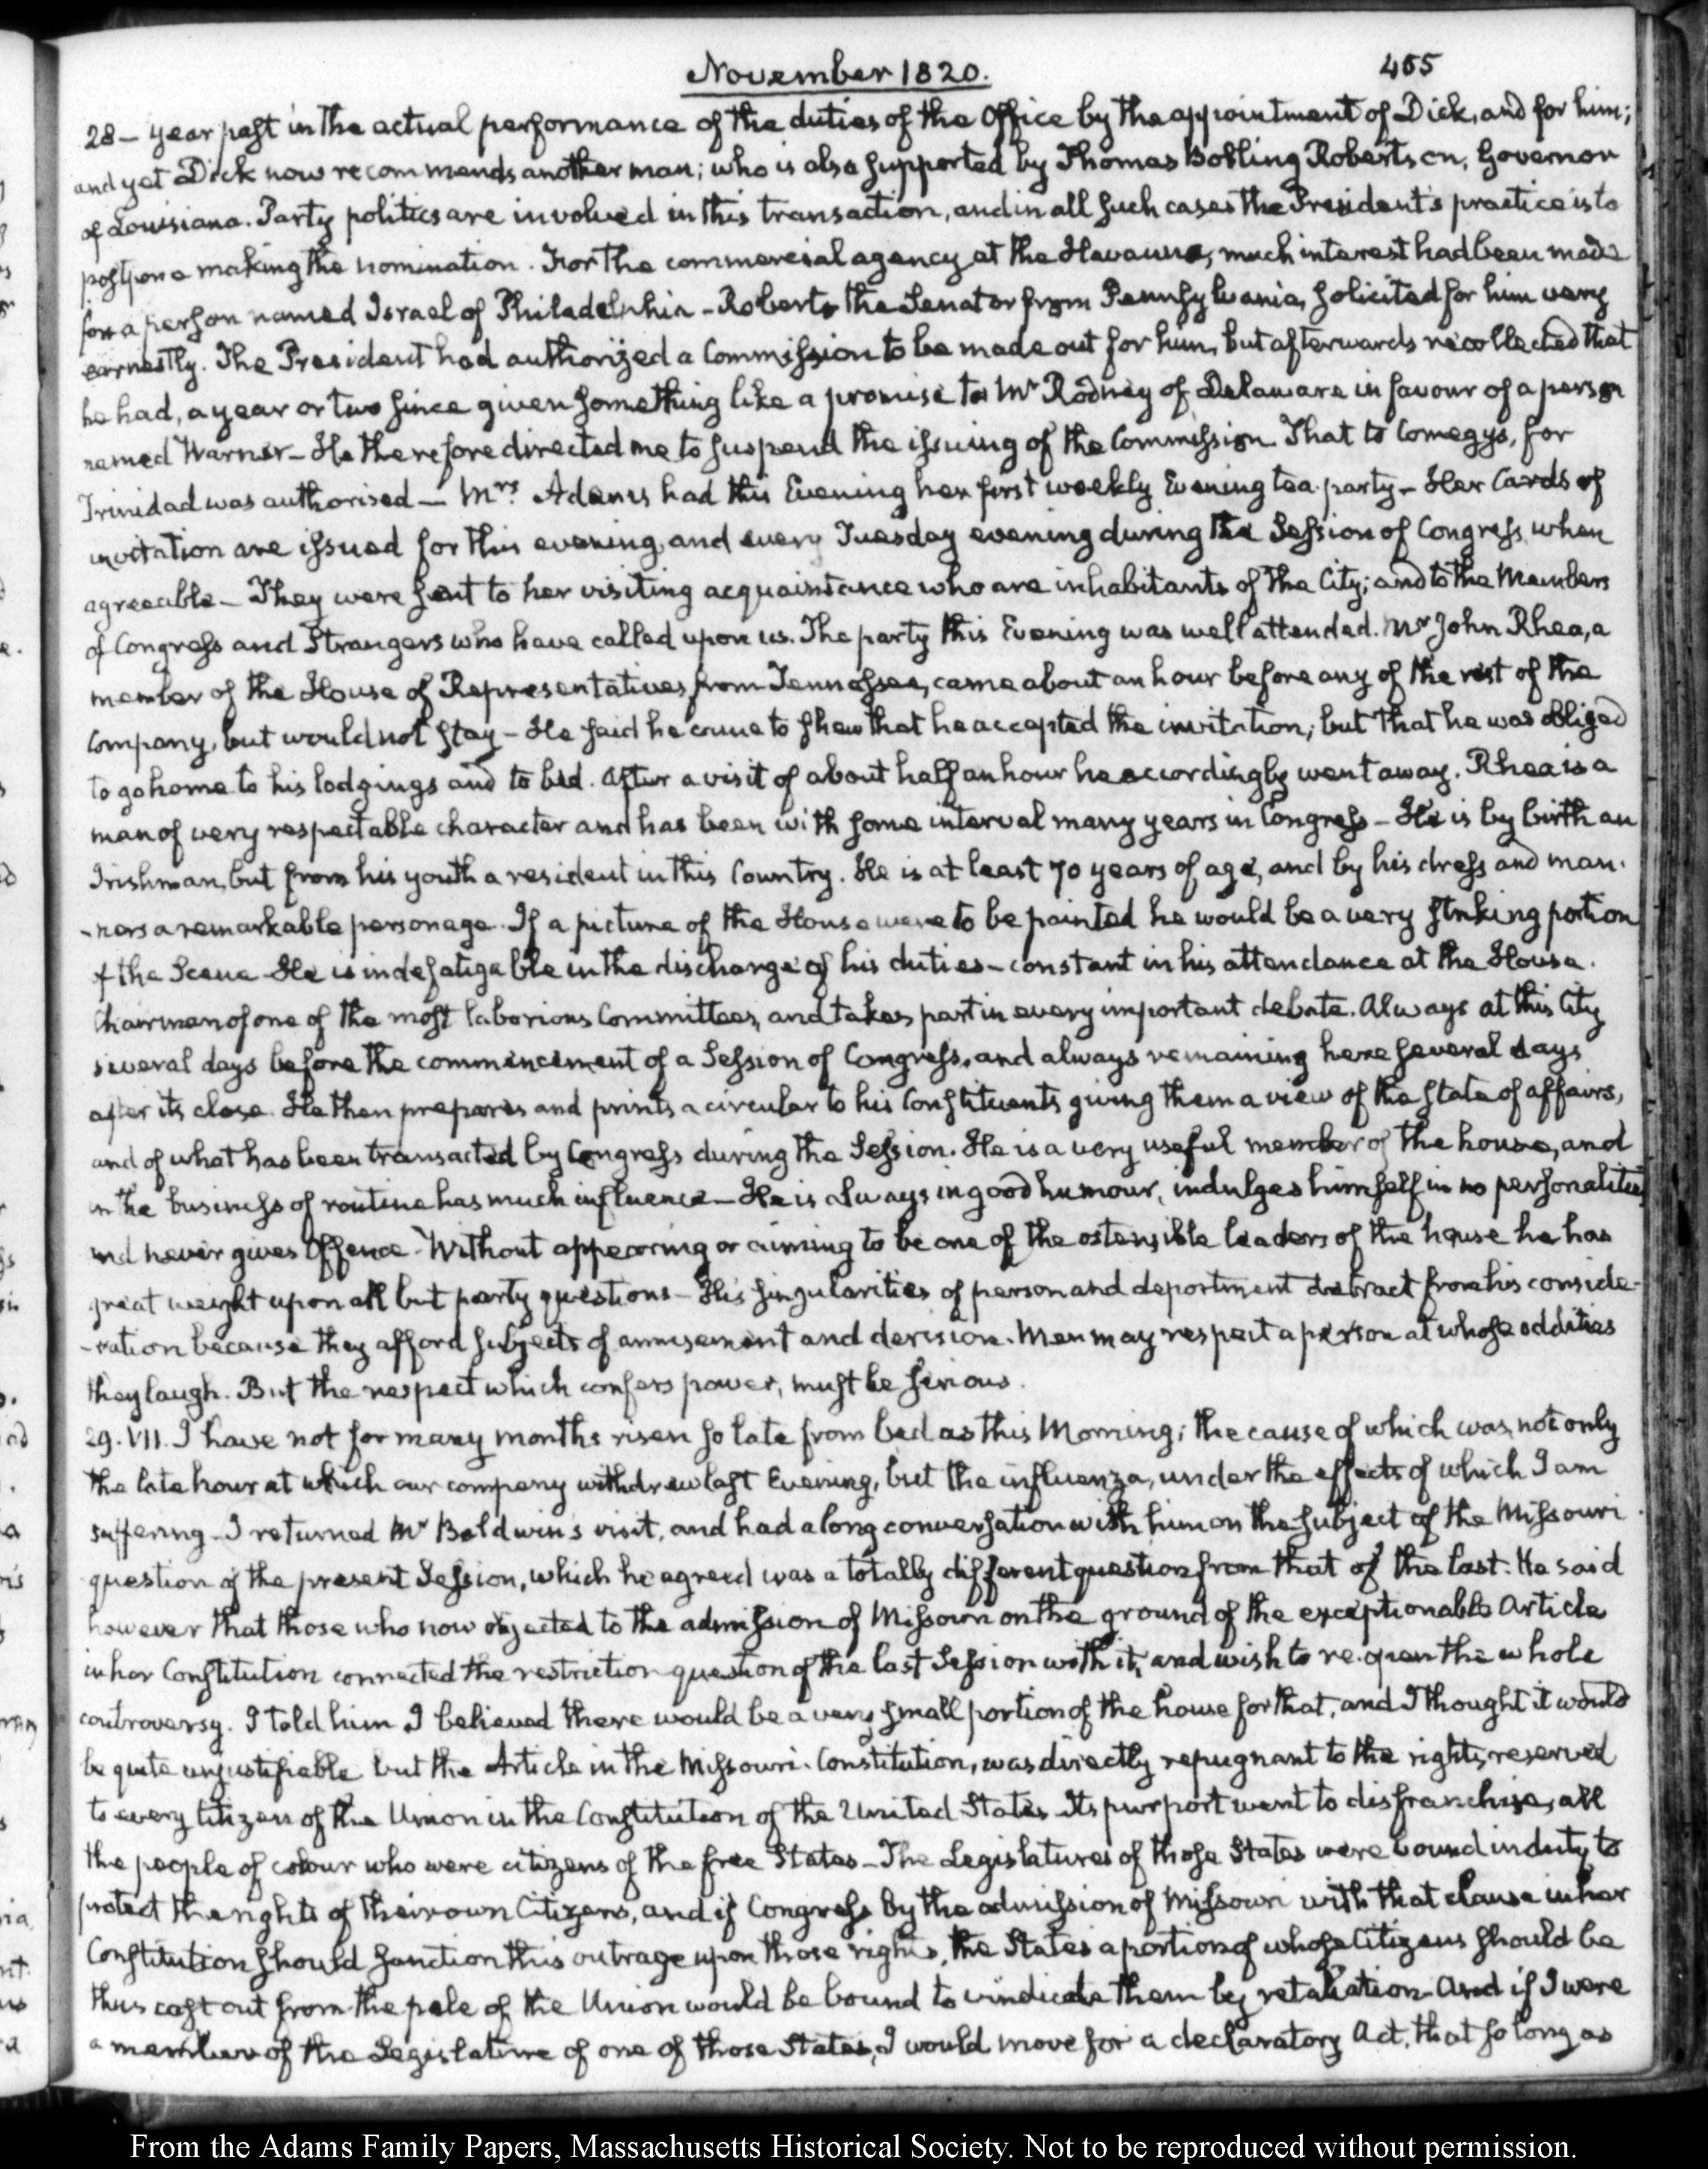 November 1820.
455
28 – year past in the actual performance of the duties of the Office by the appointment of Dick, and for him;
and yet Dick now recommends another man; who is also supported by Thomas Bolling Robertson, Governor
of Louisiana. Party politics are involved in this transaction, and in all such cases the President's practice is to
postpone making the nomination. For the commercial agency at the Havanna, much interest had been made
for a person named Israel of Philadelphia – Roberts the Senator from Pennsylvania, solicited for him very
earnestly. The President had authorized a Commission to be made out for him, but afterwards recollected that
he had, a year or two since given something like a promise to Mr Rodney of Delaware in favour of a person
named Warner – He therefore directed me to suspend the issuing of the Commission. That to Comegys, for
Trinidad was authorised – Mrs Adams had this Evening her first weekly Evening tea party – Her Cards of
invitation are issued for this evening, and every Tuesday evening during the Session of Congress, when
agreeable – They were sent to her visiting acquaintance who are inhabitants of the City; and to the Members
of Congress and Strangers who have called upon us. The party this Evening was well attended. Mr John Rhea, a
member of the House of Representatives from Tennessee, came about an hour before any of the rest of the
Company, but would not stay – He said he came to shew that he accepted the invitation; but that he was obliged
to go home to his lodgings and to bed. After a visit of about half an hour he accordingly went away. Rhea is a
man of very respectable character and has been with some interval many years in Congress – He is by birth an
Irishman, but from his youth a resident in this Country. He is at least 70 years of age, and by his dress and man-
-ners a remarkable personage. If a picture of the House were to be painted he would be a very striking portion
of the Scene – He is indefatigable in the discharge of his duties – constant in his attendance at the House.
Chairman of one of the most laborious Committees, and takes part in every important debate. Always at this City
several days before the commencement of a Session of Congress, and always remaining here several days
after its close. He then prepares and prints a circular to his Constituents giving them a view of the state of affairs,
and of what has been transacted by Congress during the Session. He is a very useful member of the house, and
in the business of routine has much influence – He is always in good humour, indulges himself in no personalities
and never gives Offence – Without appearing or aiming to be one of the ostensible leaders of the house he has
great weight upon all but party questions – His singularities of person and deportment detract from his conside-
-ration because they afford subjects of amusement and derision. Men may respect a person at whose oddities
they laugh. But the respect which confers power, must be serious.
29. VII. I have not for many months risen so late from bed as this Morning; the cause of which was, not only
the late hour at which our company withdrew last Evening, but the influenza, under the effects of which I am
suffering – I returned Mr Baldwin's visit, and had a long conversation with him on the subject of the Missouri
question of the present Session, which he agreed was a totally different question from that of the last. He said
however that those who now objected to the admission of Missouri on the ground of the exceptionable Article
in her Constitution connected the restriction question of the last Session with it, and wish to re-open the whole
controversy. I told him I believed there would be a very small portion of the house for that, and I thought it would
be quite unjustifiable but the Article in the Missouri Constitution, was directly repugnant to the rights, reserved
to every Citizen of the Union in the Constitution of the United States. Its purport went to disfranchise, all
the people of colour who were citizens of the free States – The Legislatures of those States were bound in duty to
protect the rights of their own Citizens, and if Congress by the admission of Missouri with that clause in her
Constitution should sanction this outrage upon those rights, the States a portion of whose Citizens should be
thus cast out from the pale of the Union would be bound to vindicate them by retaliation – And if I were
a member of the Legislature of one of those States, I would move for a declaratory Act, that so long as
From the Adams Family Papers, Massachusetts Historical Society. Not to be reproduced without permission.